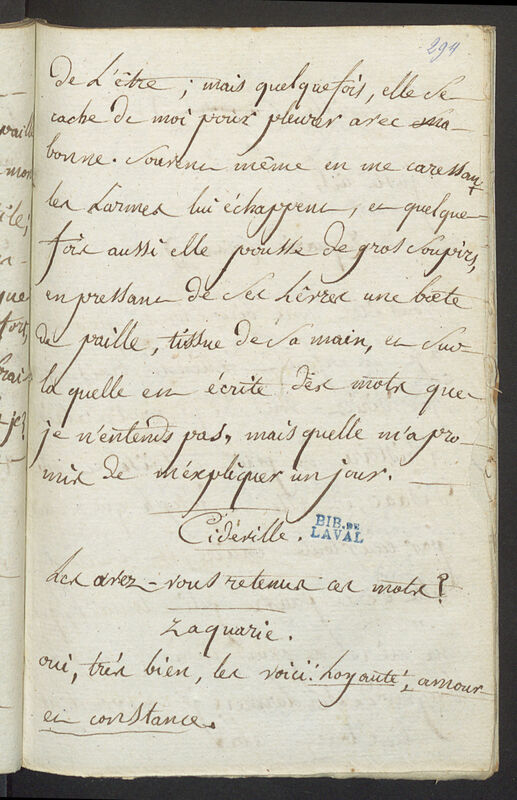 294
de L'être ; mais quelquefois, elle se
cache de moi pour pleurer avec ma
bonne. Souvent même en me caressant
les Larmes lui échappent, et quelque
fois aussi elle pousse de gros soupirs,
en pressant de ses Lèvres une boete
de paille, tissue de sa main, et sur
la quelle est écrite des mots que
je n'entends pas, mais quelle m'a pro
mis de m'expliquer un jour.
Cidéville.
BIB. DE
LAVAL
Les avez-vous retenus ces mots ?
Zaquarie.
oui, très bien, les voici : Loyauté, amour
et constance.